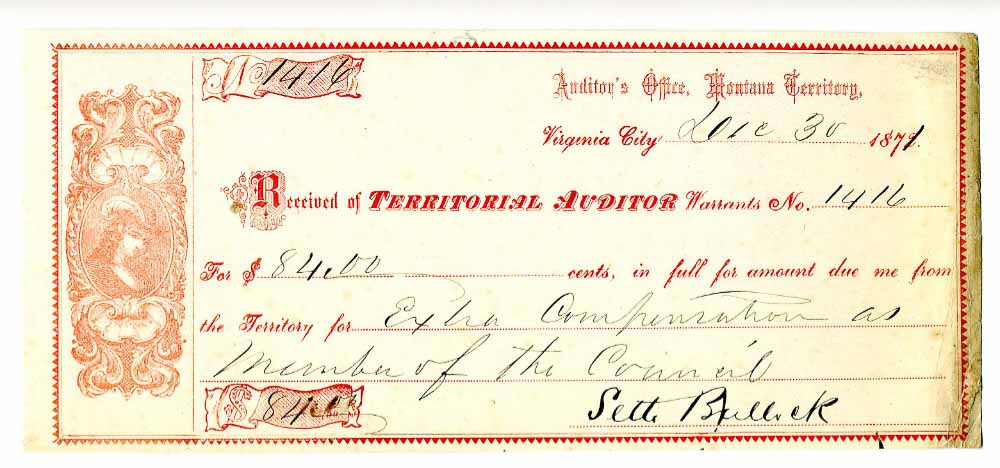 No 1416
Auditor's Office, Montana Territory,
Virginia City Dec 30 1871.
Received of TERRITORIAL AUDITOR Warrants No. 1416
For $ 84.00 cents, in full for amount due me from
the Territory for Extra Compensation as
Member of the Council
$ 84.00
Seth Bullock